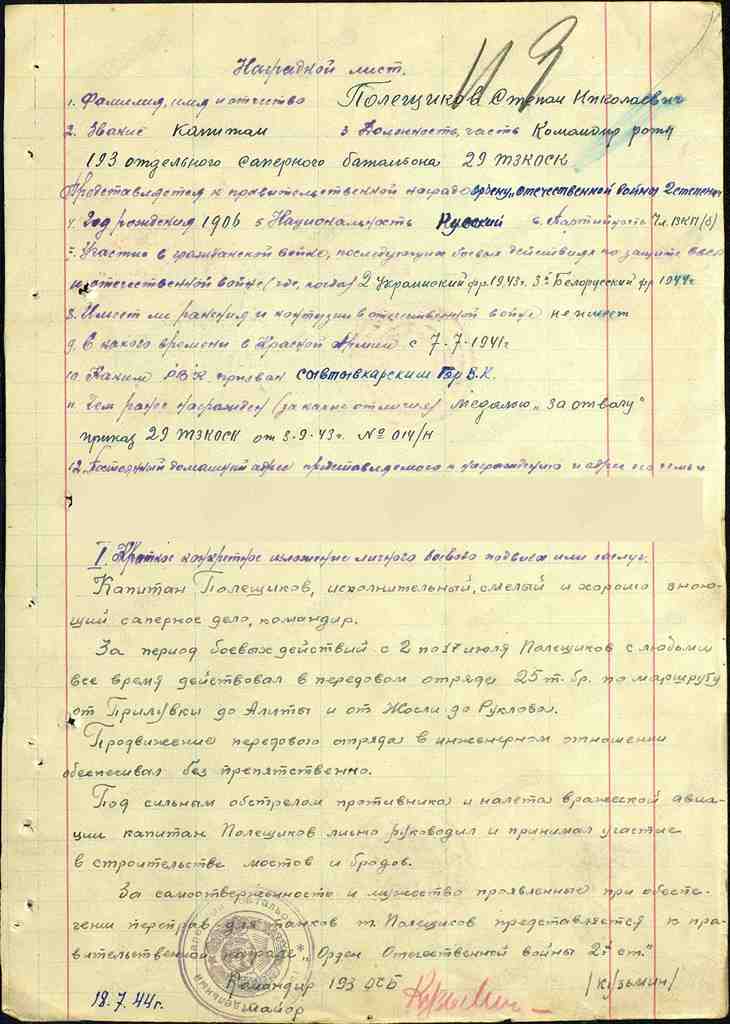 И 3
Наградной лист.
1. Фамилия, имя и отчество Полещиков Степан Николаевич
2. Звание Капитан 3 Должность, часть Командир роты
193 отдельного саперного батальона 29 ТЗКОСК
Представляется к правительственной награде ордену „отечественной войны 2 степени"
4. Год рождения 1906 5 Национальность Русский 6. Партийность Чл. ВКП(б)
7. Участие в гражданской войне, последующих боевых действиях по защите СССР
и отечественной войне (где, когда) 2 Украинский фр. 1943г. 3й Белорусский фр 1944г
8. Имеет ли ранения и контузии в отечественной войне не имеет
9. С какого времени в Красной Армии с 7-7-1941г
10. Каким РВК призван сывтывкарским Гор В.К.
11. Чем ранее награжден (за какие отличия) Медалью „За отвагу"
приказ 29 ТЗКОСК от 5-9-43г. № 014/н
12. Постоянный домашний адрес представляемого к награждению и адрес его семьи
I. Краткое конкретное изложение личного боевого подвига или заслуг.
Капитан Полещиков, исполнительный, смелый и хорошо знаю-
щий саперное дело, командир.
За период боевых действий с 2 по 17 июля Полещиков с людьми
все время действовал в передовом отряде 25 т. бр. по маршруту
от Прилувки до Алиты и от Жосли до Руклова.
Продвижение передового отряда в инженерном отношении
обеспечивал без препятственно.
Под сильным обстрелом противника и налета вражеской авиа-
ции капитан Полещиков лично руководил и принимал участие
в строительстве мостов и бродов.
За самоотверженность и мужество проявленные при обеспе-
чении переправ для танков т. Полещиков представляется к пра-
вительственной награде „Орден Отечественной войны 2й ст."
Командир 193 ОСБ
майор /Кузьмин/
18.7.44г.